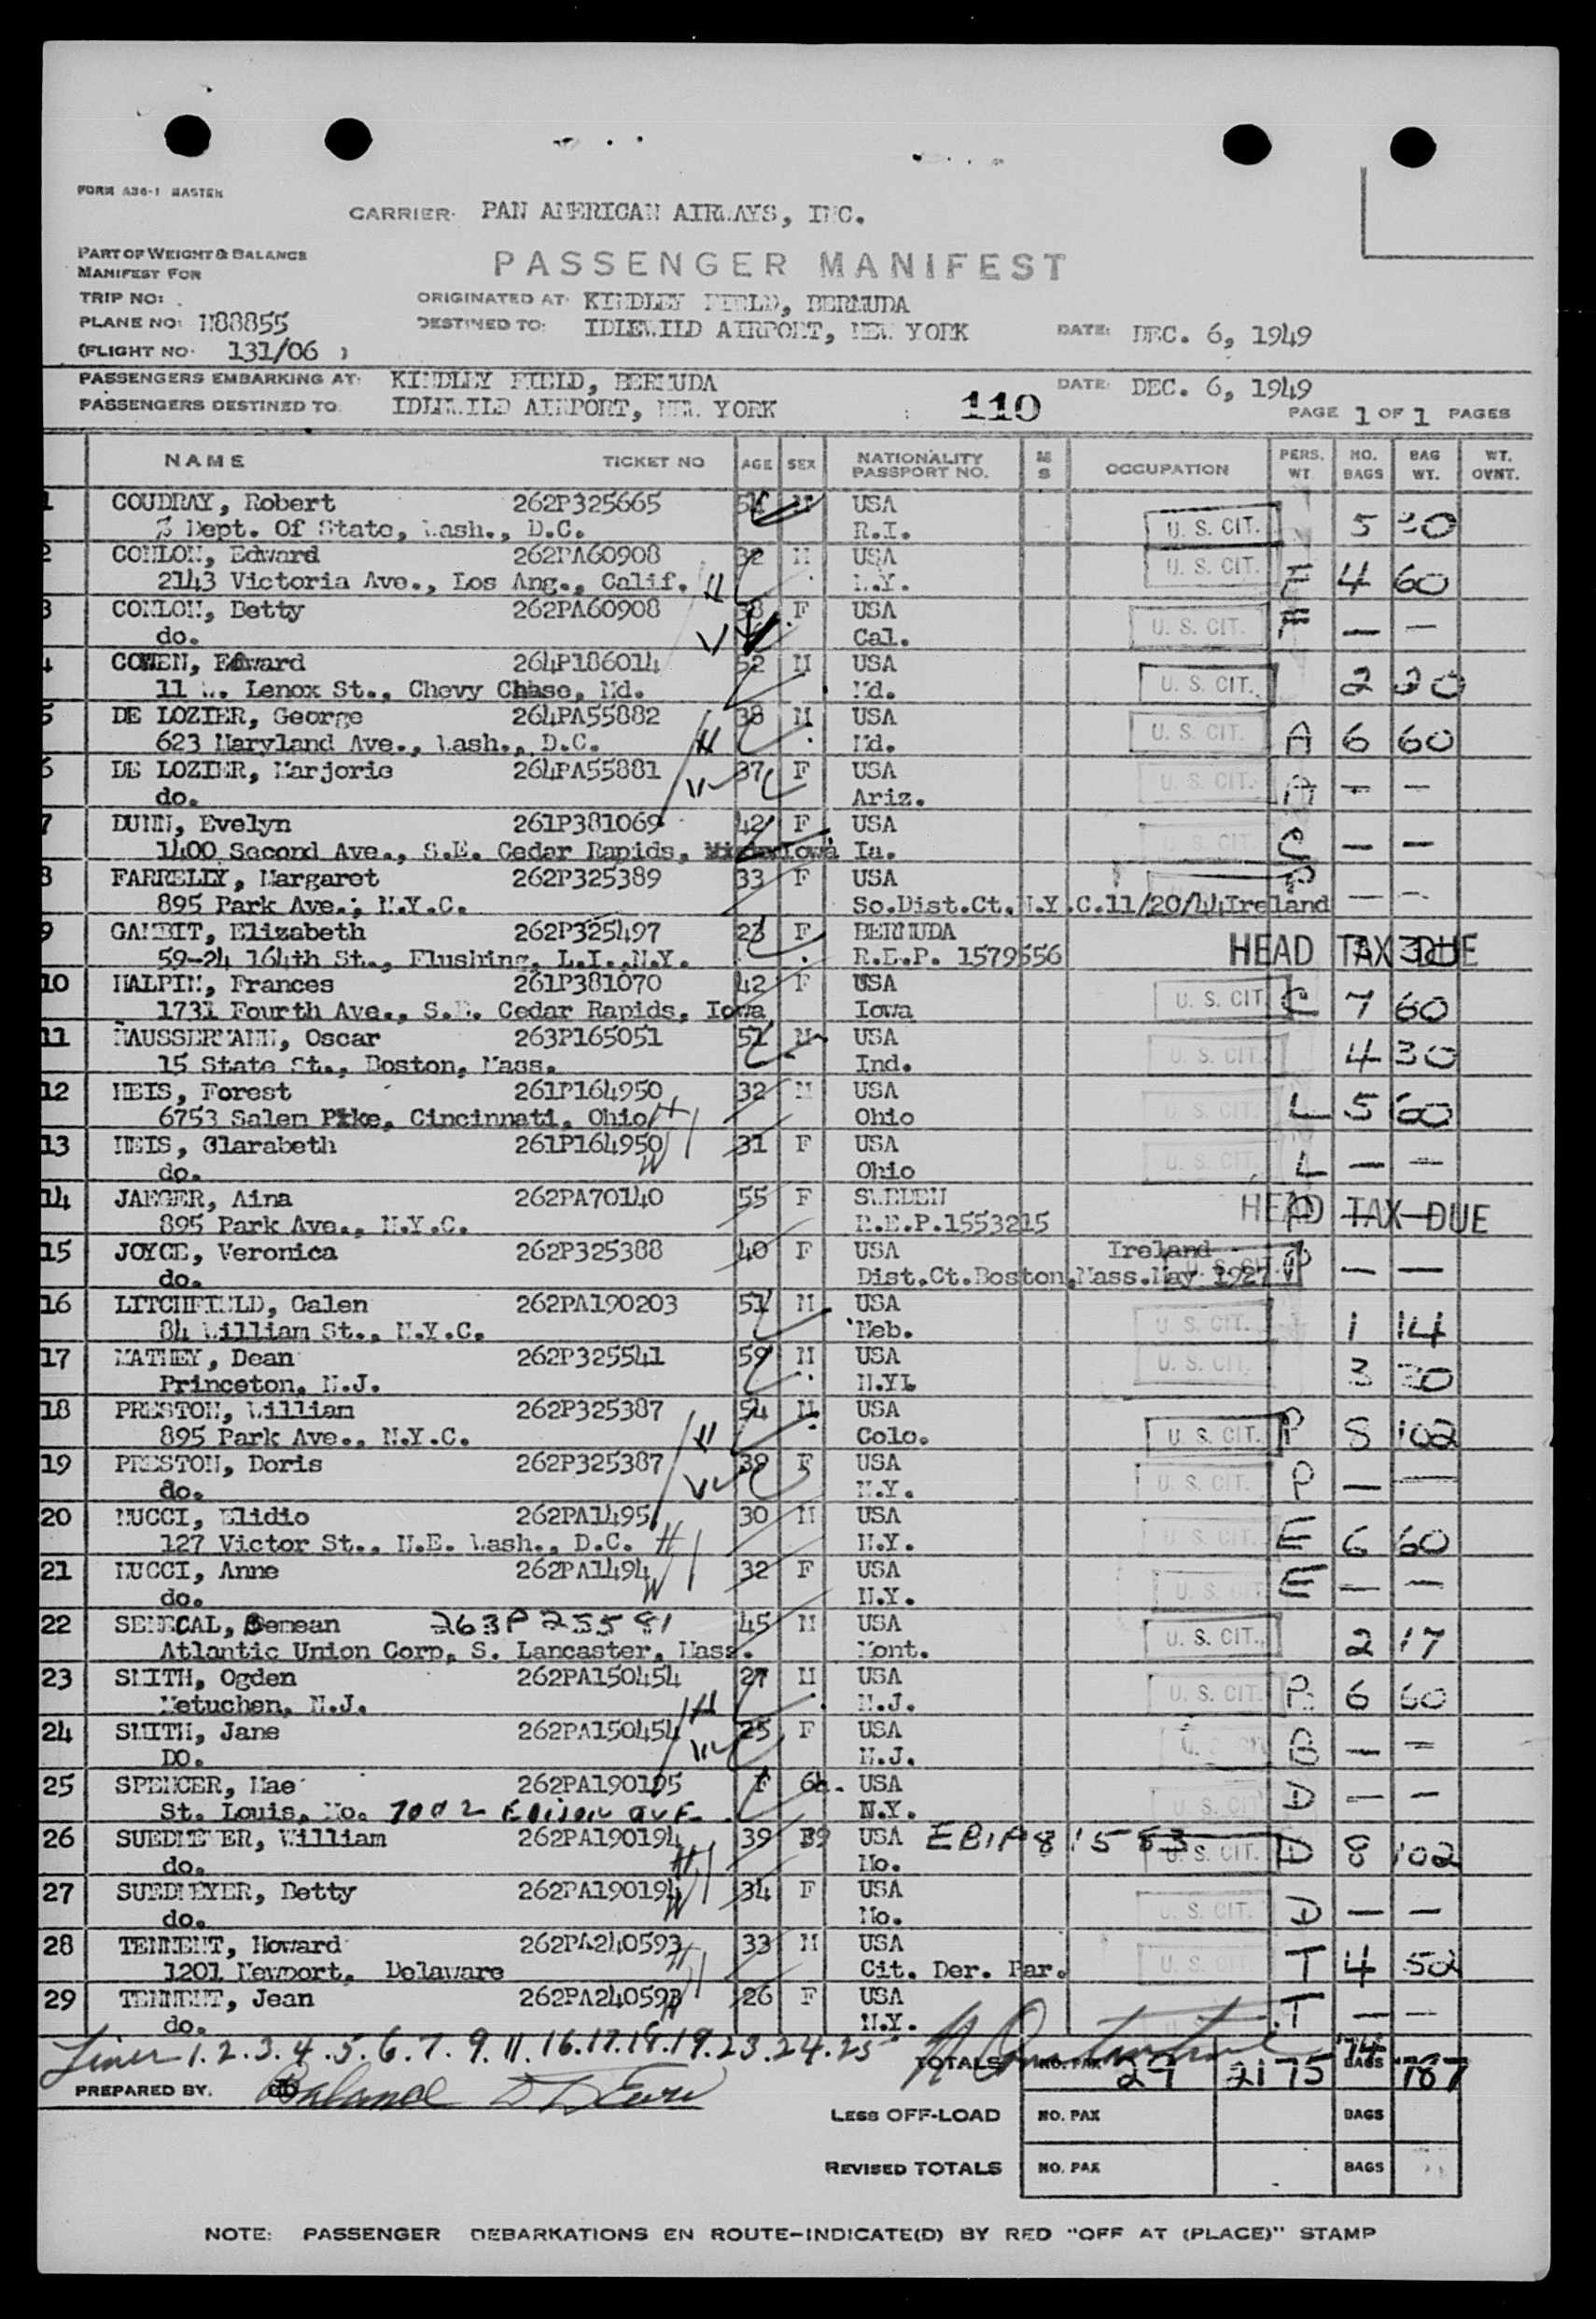 FORM A36-1 MASTER
CARRIER: PAN AMERICAN AIRWAYS, INC.
PART OF WEIGHT & BALANCE
MANIFEST FOR
PASSENGER MANIFEST
TRIP NO:
ORIGINATED AT: KINDLEY FIELD, BERMUDA
PLANE NO: N88855
DESTINED TO: IDLEWILD AIRPORT, NEW YORK DATE: DEC. 6, 1949
(FLIGHT NO. 131/06 )
PASSENGERS EMBARKING AT: KINDLEY FIELD, BERMUDA DATE: DEC. 6, 1949
PASSENGERS DESTINED TO: IDLEWILD AIRPORT, NEW YORK 110 PAGE 1 OF 1 PAGES
NAME TICKET NO AGE SEX NATIONALITY PASSPORT NO. M S OCCUPATION PERS. WT NO. BAGS BAG WT. WT. OVNT.
1 COUDRAY, Robert 262P325665 M USA
% Dept. Of State, Wash., D.C. R.I. U. S. CIT. 5 30
2 CONLON, Edward 262PA60908 32 M USA U. S. CIT.
2143 Victoria Ave., Los Ang., Calif. N.Y. F 4 60
3 CONLON, Betty 262PA60908 38 F USA U. S. CIT. F — —
do. Cal.
4 COHEN, Edward 264P186014 52 M USA
11 W. Lenox St., Chevy Chase, Md. Md. U. S. CIT. 2 20
5 DE LOZIER, George 264PA55882 38 M USA
623 Maryland Ave., Wash., D.C. Md. U. S. CIT. A 6 60
6 DE LOZIER, Marjorie 264PA55881 37 F USA U. S. CIT. A — —
do. Ariz.
7 DUNN, Evelyn 261P381069 42 F USA
1400 Second Ave., S.E. Cedar Rapids, Iowa Ia. U. S. CIT. C — —
8 FARRELLY, Margaret 262P325389 33 F USA P — —
895 Park Ave., N.Y.C. So.Dist.Ct.N.Y.C.11/20/44Ireland
9 GAMBIT, Elizabeth 262P325497 23 F BERMUDA HEAD TAX DUE
59-24 164th St., Flushing, L.I.,N.Y. R.E.P. 1579556
10 HALPIN, Frances 261P381070 42 F USA
1731 Fourth Ave., S.E. Cedar Rapids, Iowa Iowa U. S. CIT. C 7 60
11 HAUSSERMANN, Oscar 263P165051 51 M USA
15 State St., Boston, Mass. Ind. U. S. CIT. 4 30
12 HEIS, Forest 261P164950 32 M USA
6753 Salem Pike, Cincinnati, Ohio H Ohio U. S. CIT. L 5 60
13 HEIS, Clarabeth 261P164950 31 F USA
do. W Ohio U. S. CIT. L — —
14 JAEGER, Aina 262PA70140 55 F SWEDEN HEAD TAX DUE
895 Park Ave., N.Y.C. R.E.P.1553215
15 JOYCE, Veronica 262P325388 40 F USA Ireland
do. Dist.Ct.Boston,Mass.May 1927 P — —
16 LITCHFIELD, Galen 262PA190203 51 M USA
84 William St., N.Y.C. Neb. U. S. CIT. 1 14
17 MATHEY, Dean 262P325541 59 M USA U. S. CIT.
Princeton, N.J. N.Y. 3 30
18 PRESTON, William 262P325387 54 M USA
895 Park Ave., N.Y.C. H Colo. U. S. CIT. P 8 102
19 PRESTON, Doris 262P325387 39 F USA
do. N.Y. U. S. CIT. P — —
20 NUCCI, Elidio 262PA1495 30 M USA
127 Victor St., N.E. Wash., D.C. H N.Y. U. S. CIT. E 6 60
21 NUCCI, Anne 262PA1494 32 F USA
do. W N.Y. U. S. CIT. E — —
22 SENECAL, Benean 263P25581 45 M USA
Atlantic Union Corp, S. Lancaster, Mass. Mont. U. S. CIT. 2 17
23 SMITH, Ogden 262PA150454 27 M USA
Metuchen, N.J. H N.J. U. S. CIT. B 6 60
24 SMITH, Jane 262PA150454 25 F USA
DO. W N.J. B — —
25 SPENCER, Mae 262PA190195 F USA
St. Louis, Mo. 7002 Edison ave N.Y. U. S. CIT. D — —
26 SUEDMEYER, William 262PA190194 39 USA
do. H Mo. U. S. CIT. D 8 102
27 SUEDMEYER, Betty 262PA190194 34 F USA
do. W Mo. U. S. CIT. D — —
28 TENNENT, Howard 262PA240593 33 M USA
1201 Newport, Delaware H Cit. Der. Par. U. S. CIT. T 4 50
29 TENNENT, Jean 262PA240593 26 F USA
do. W N.Y. T — —
Lines 1.2.3.4.5.6.7.9.11.16.17.18.19.23.24.25
TOTALS NO. PAX 29 2175 74 BAGS 787
PREPARED BY. db
LESS OFF-LOAD NO. PAX BAGS
REVISED TOTALS NO. PAX BAGS
NOTE: PASSENGER DEBARKATIONS EN ROUTE—INDICATE(D) BY RED "OFF AT (PLACE)" STAMP